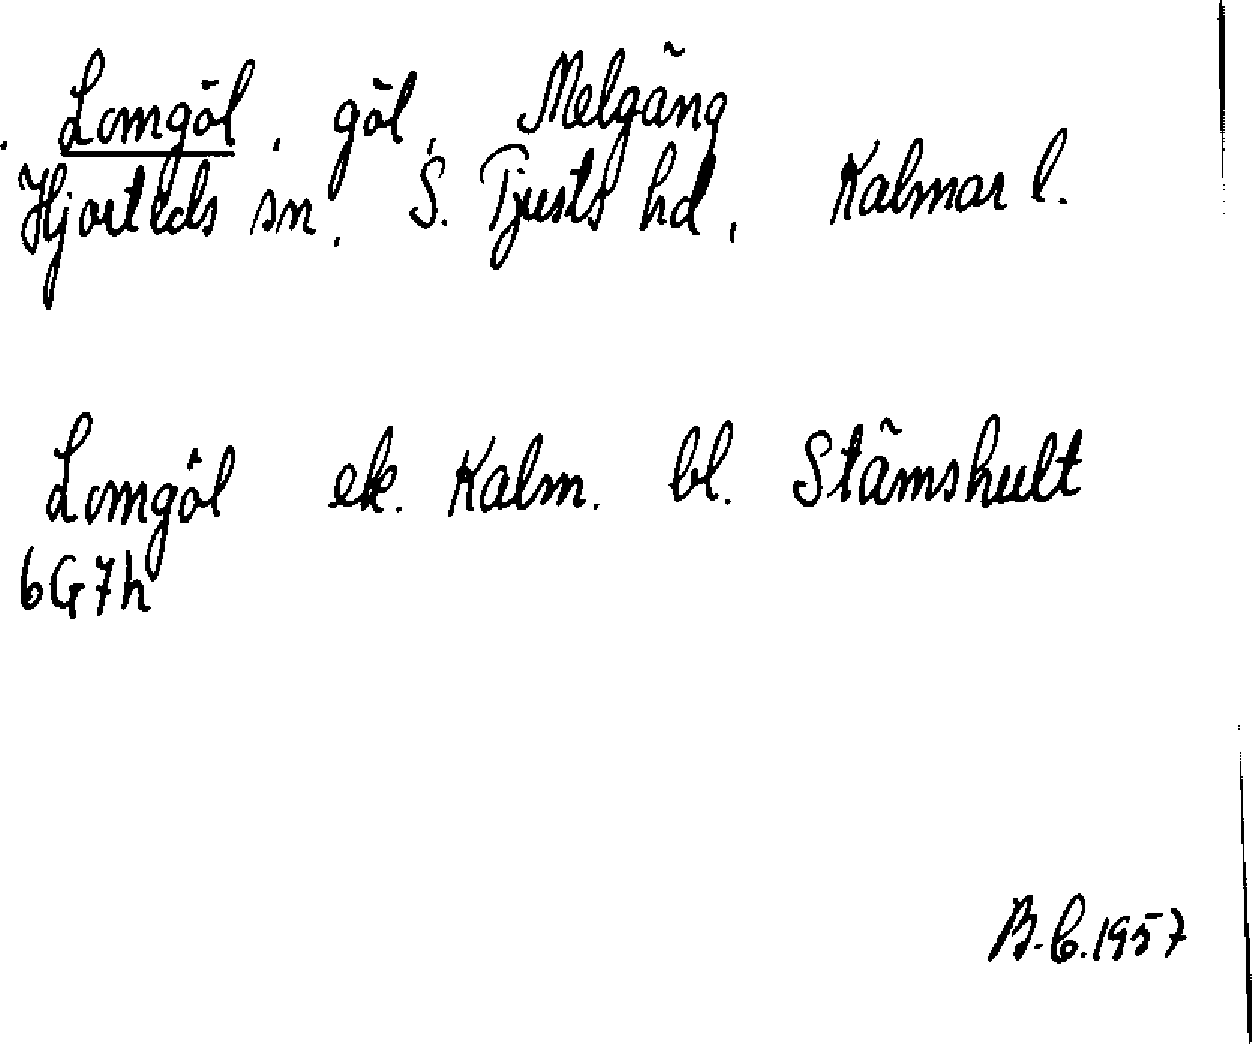 Lomgöl, göl, Melgäng
Hjorteds sn, S. Tjusts hd, Kalmar l.
Lomgöl ek. Kalm. bl. Stämshult
6G7h
B.C.1957